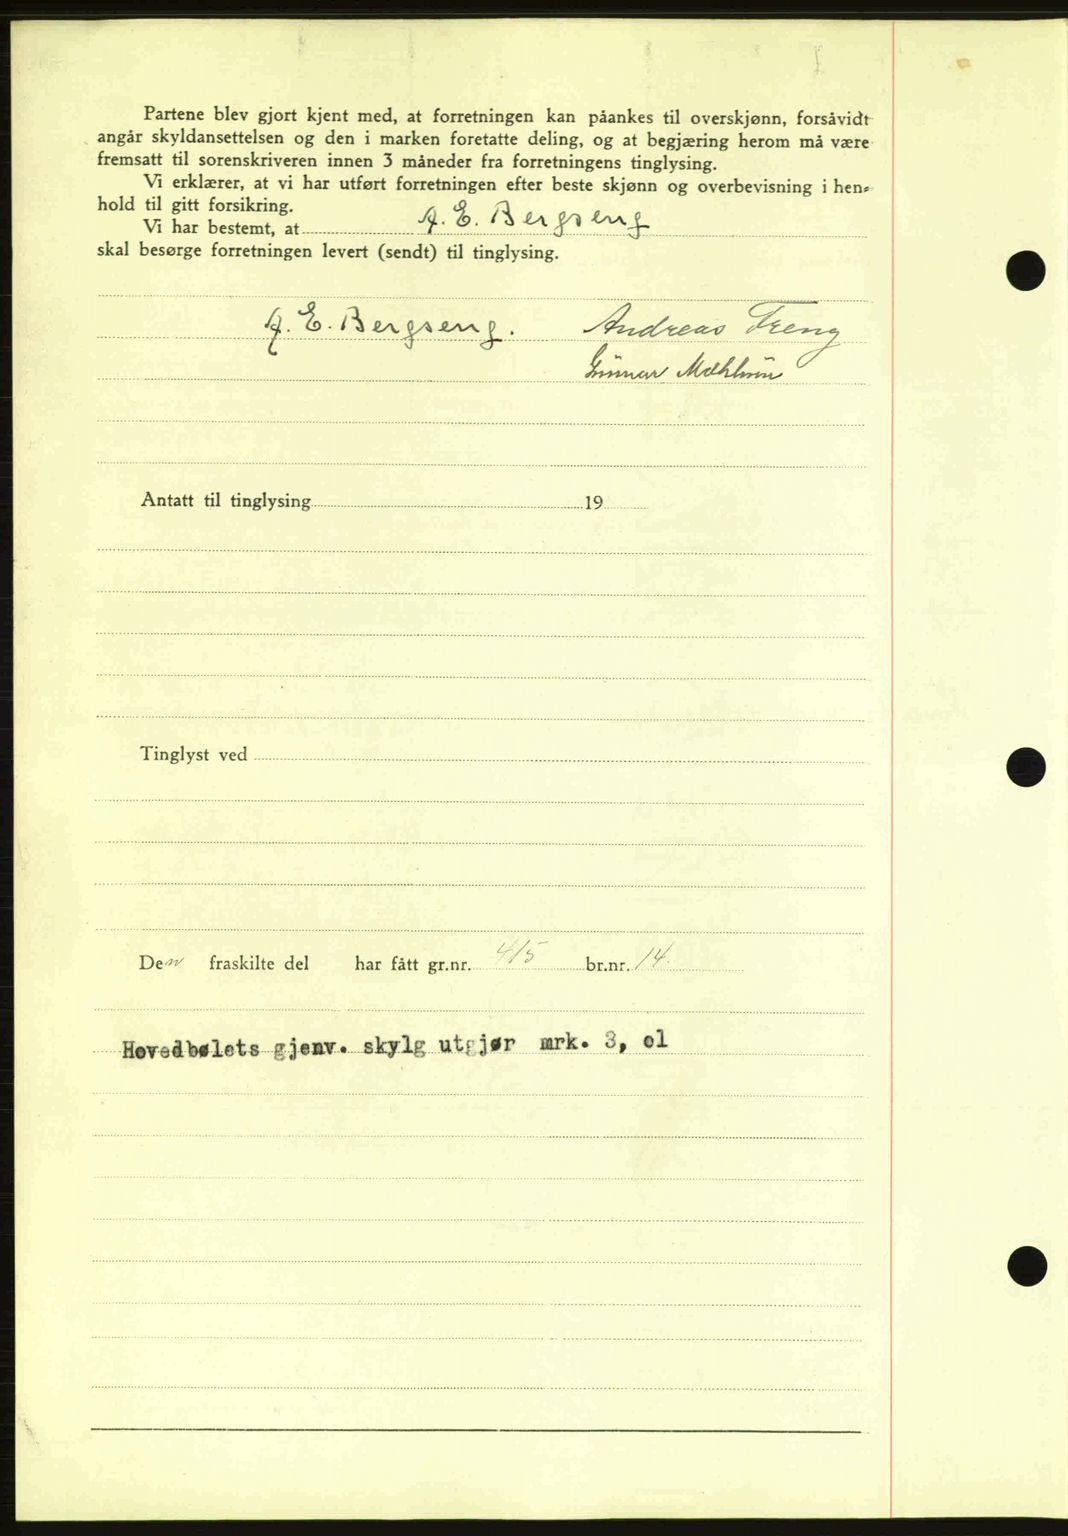 Partene blev gjort kjent med, at forretningen kan påankes til overskjønn, forsåvidt
angår skyldansettelsen og den i marken foretatte deling, og at begjæring herom må være
fremsatt til sorenskriveren innen 3 måneder fra forretningens tinglysing.
Vi erklærer, at vi har utført forretningen efter beste skjønn og overbevisning i hen-
hold til gitt forsikring.
Vi har bestemt, at A. E. Bergseng
skal besørge forretningen levert (sendt) til tinglysing.
A. E. Bergseng. Andreas Freng
Gunnar Mæhlum
Antatt til tinglysing 19
Tinglyst ved
Den fraskilte del har fått gr.nr. 415 br.nr. 14.
Hovedbølets gjenv. skylg utgjør mrk. 3, ol